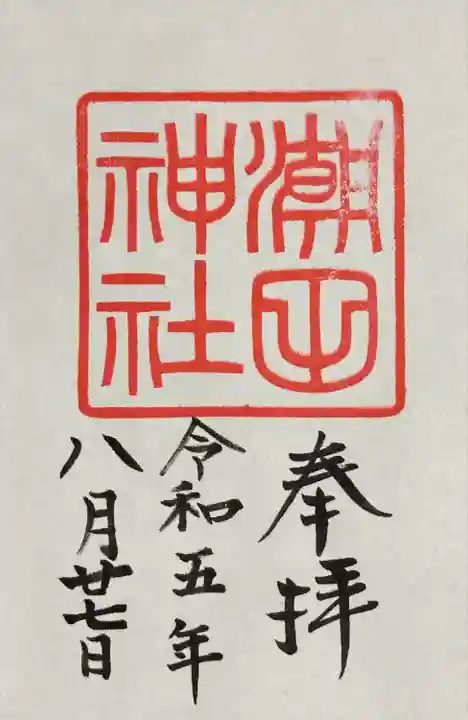 潮田
神社
奉拝
令和五年
八月廿七日